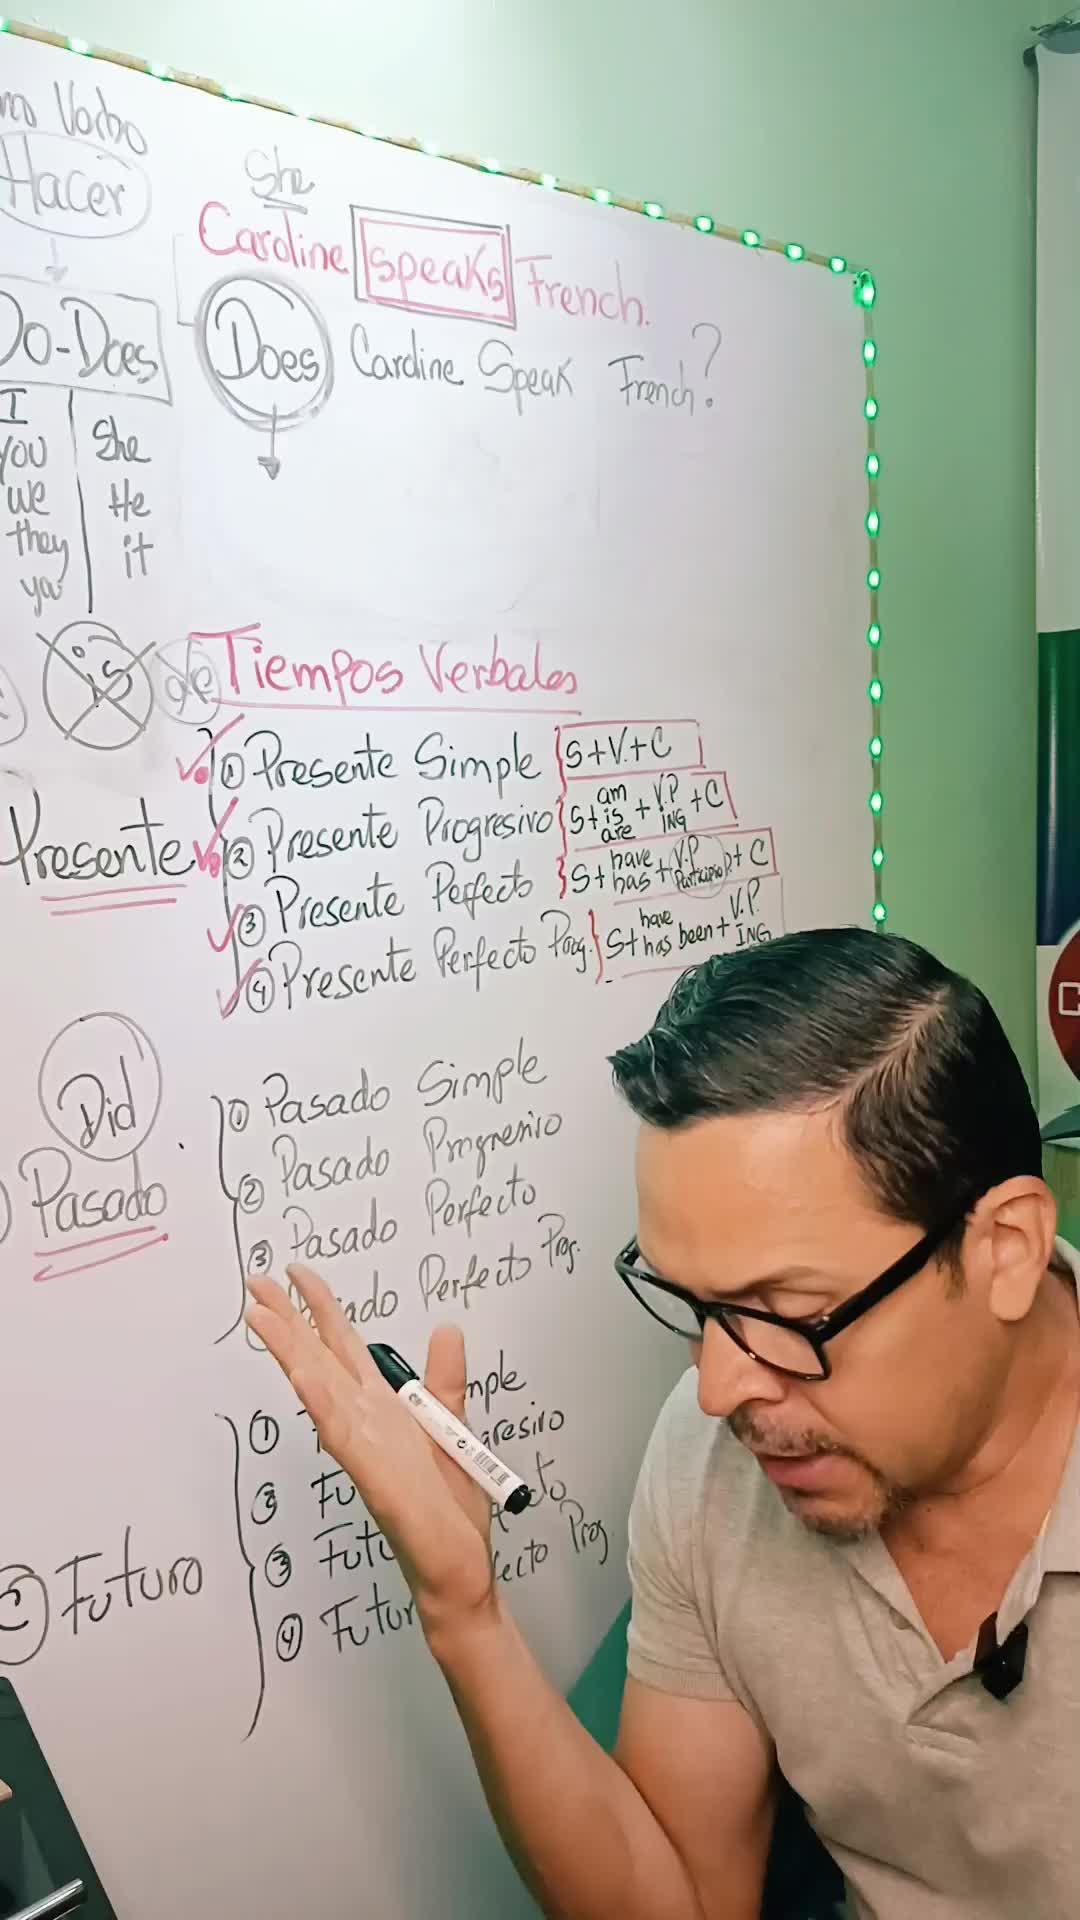 Verbo
Hacer
Do-Does
I
you
we
they
She
He
it
She
Caroline speaks French.
Does Caroline Speak French?
is
de Tiempos Verbales
Presente
① Presente Simple S+V.+C
② Presente Progresivo S+ am is are + V.P ING + C
③ Presente Perfecto S+ have has + (V.P Participio) + C
④ Presente Perfecto Prog. S+ have has been + V.P. ING
Did
Pasado
① Pasado Simple
② Pasado Progresivo
③ Pasado Perfecto
Perfecto Prog.
Futuro
①
②
③
④ Futur
Prog.